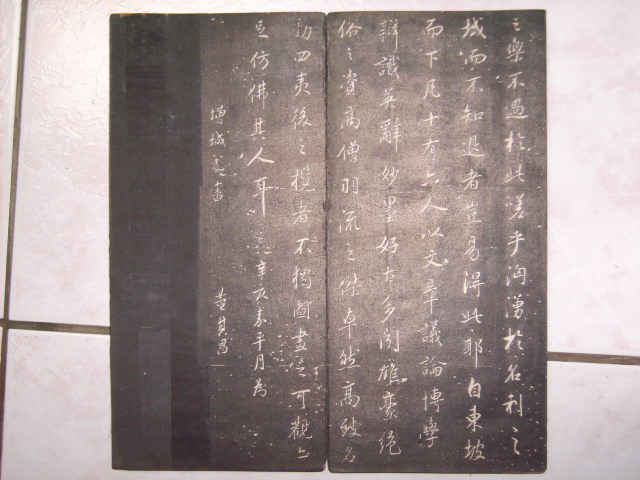 之樂不過於此嗟乎洶湧於名利之
域而不知退者豈易得此耶自東坡
而下凡十有六人以文章議論博學
辨識英辭妙墨好古多聞雄豪絕
俗之資高僧羽流之傑卓然高致名
動四夷後之攬者不獨圖畫之可觀亦
足仿佛其人耳 辛亥嘉平月為
增城 書 董其昌